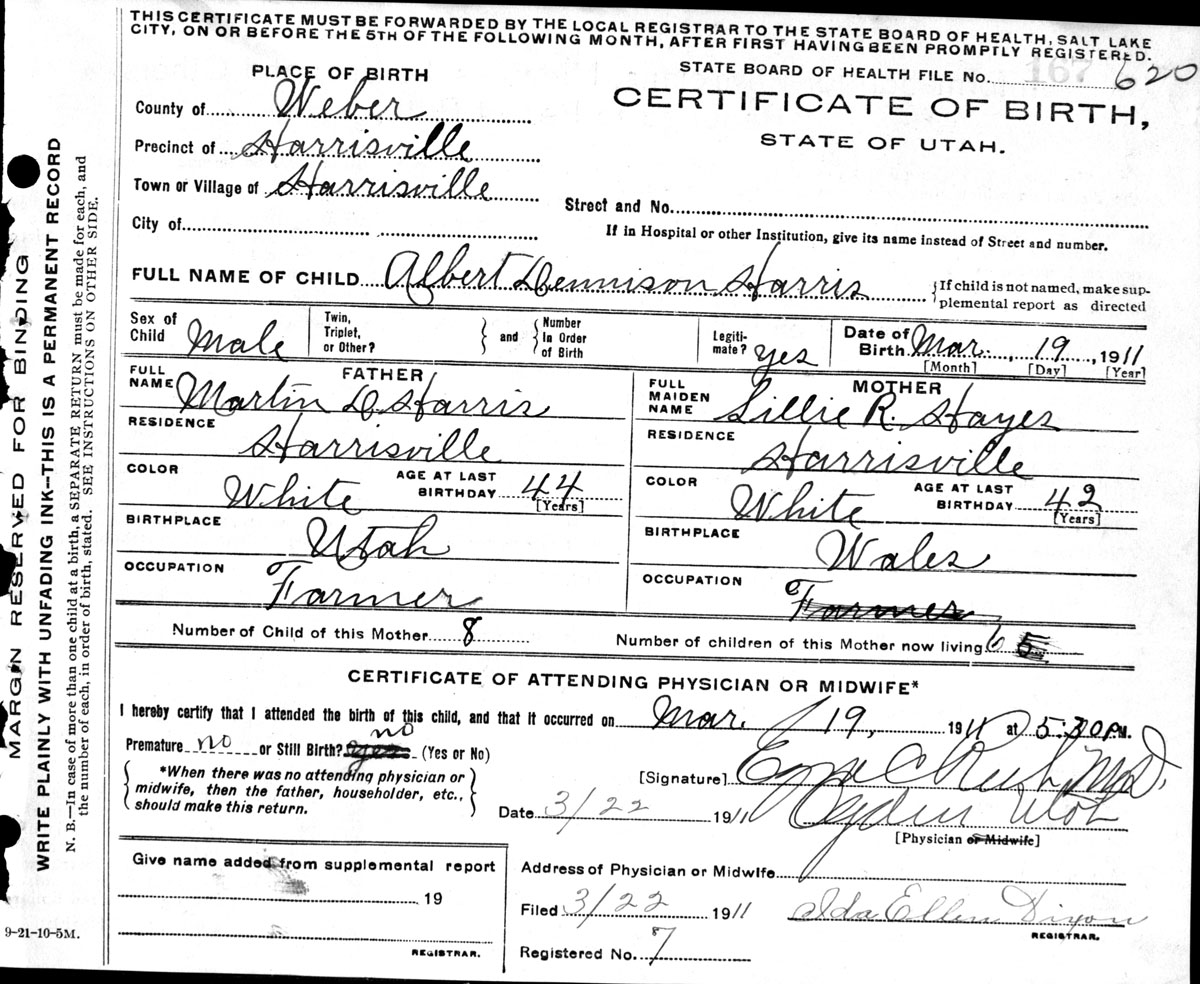 THIS CERTIFICATE MUST BE FORWARDED BY THE LOCAL REGISTRAR TO THE STATE BOARD OF HEALTH, SALT LAKE
CITY, ON OR BEFORE THE 5TH OF THE FOLLOWING MONTH, AFTER FIRST HAVING BEEN PROMPTLY REGISTERED.
PLACE OF BIRTH
STATE BOARD OF HEALTH FILE No. 167 620
County of Weber
CERTIFICATE OF BIRTH,
STATE OF UTAH.
Precinct of Harrisville
Town or Village of Harrisville
Street and No.
City of
If in Hospital or other Institution, give its name instead of Street and number.
FULL NAME OF CHILD Albert Dennison Harris
{If child is not named, make sup-
plemental report as directed
Sex of Child Male
Twin, Triplet, or Other?
and
Number In Order of Birth
Legiti-mate? yes
Date of Birth Mar. 19, 1911
[Month] [Day] [Year]
FATHER
FULL NAME Martin D. Harris
RESIDENCE
Harrisville
COLOR White
AGE AT LAST BIRTHDAY 44
[Years]
BIRTHPLACE
Utah
OCCUPATION
Farmer
MOTHER
FULL MAIDEN NAME Lillie R. Hayes
RESIDENCE
Harrisville
COLOR White
AGE AT LAST BIRTHDAY 42
[Years]
BIRTHPLACE
Wales
OCCUPATION
Farmer
Number of Child of this Mother 8
Number of children of this Mother now living 6 5
CERTIFICATE OF ATTENDING PHYSICIAN OR MIDWIFE*
I hereby certify that I attended the birth of this child, and that it occurred on Mar. 19, 1911 at 5:30 P.M.
Premature no or Still Birth? yes no (Yes or No)
*When there was no attending physician or
midwife, then the father, householder, etc.,
should make this return.
[Signature] Ezra C Rich M.D.
Date 3/22 1911
Ogden Utah
[Physician or Midwife]
Give name added from supplemental report
19
REGISTRAR.
Address of Physician or Midwife
Filed 3/22 1911
Ida Ellen Dixon
REGISTRAR.
Registered No. 7
MARGIN RESERVED FOR BINDING
WRITE PLAINLY WITH UNFADING INK—THIS IS A PERMANENT RECORD
N. B.—In case of more than one child at a birth, a SEPARATE RETURN must be made for each, and
the number of each, in order of birth, stated. SEE INSTRUCTIONS ON OTHER SIDE.
9-21-10-5M.